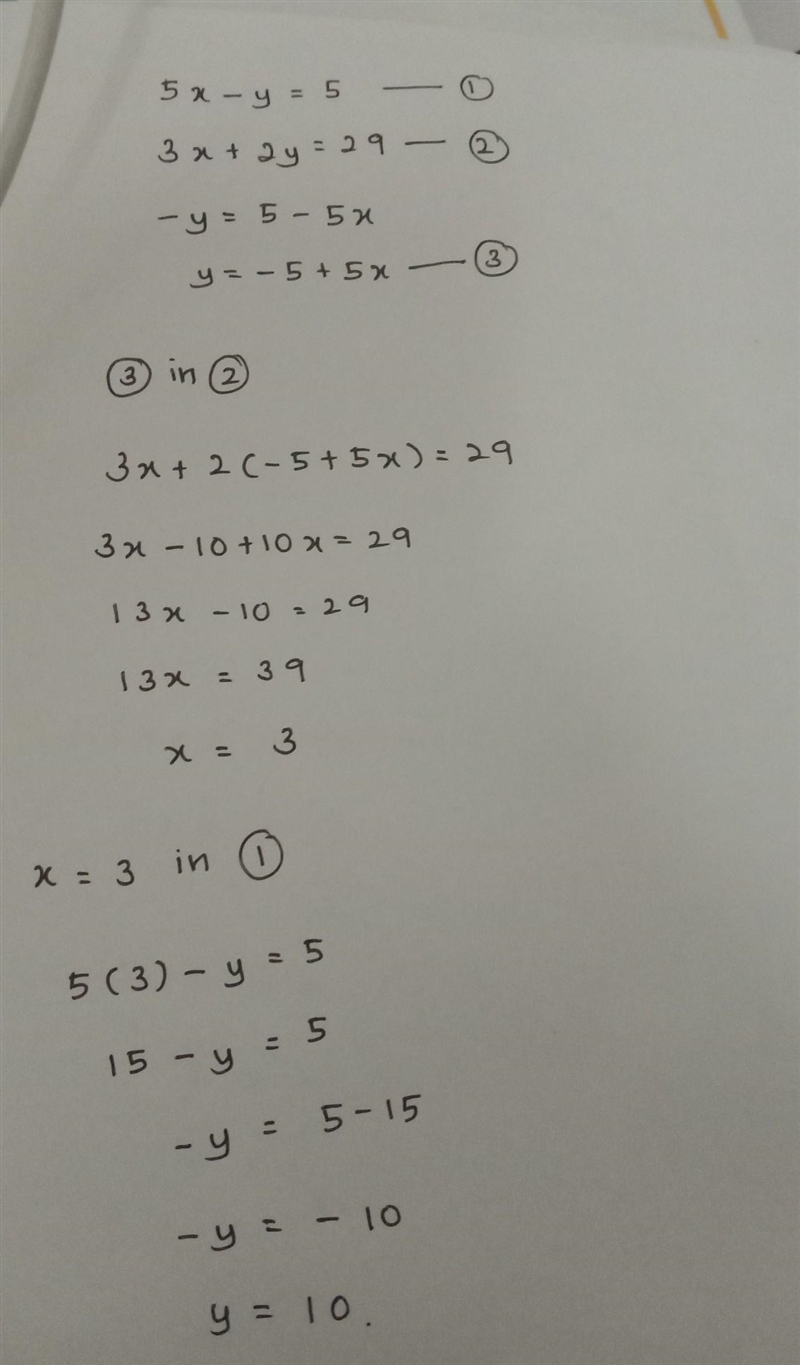 5x - y = 5 — ①
3x + 2y = 29 — ②
-y = 5 - 5x
y = -5 + 5x — ③
③ in ②
3x + 2(-5 + 5x) = 29
3x - 10 + 10x = 29
13x - 10 = 29
13x = 39
x = 3
x = 3 in ①
5(3) - y = 5
15 - y = 5
-y = 5 - 15
-y = -10
y = 10.